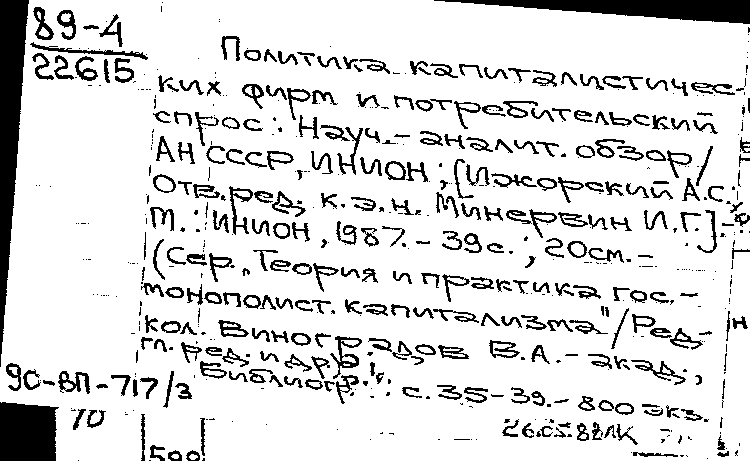 89-4
22615
Политика капиталистичес-
ких фирм и потребительский
спрос: Науч.-аналит. обзор/
АН СССР, ИНИОН; [Ижорский А.С.;
Отв. ред. к.э.н. Минервин И.Г.].-
М.: ИНИОН, 1987.- 39с.; 20см.-
(Сер. "Теория и практика гос.-
монополист. капитализма"/Ред-
кол. Виноградов В.А.-акад.,
гл. ред. и др.)
Библиогр.: с. 35-39.- 800 экз.
90-ВП-717/3
26.05.88
70
599